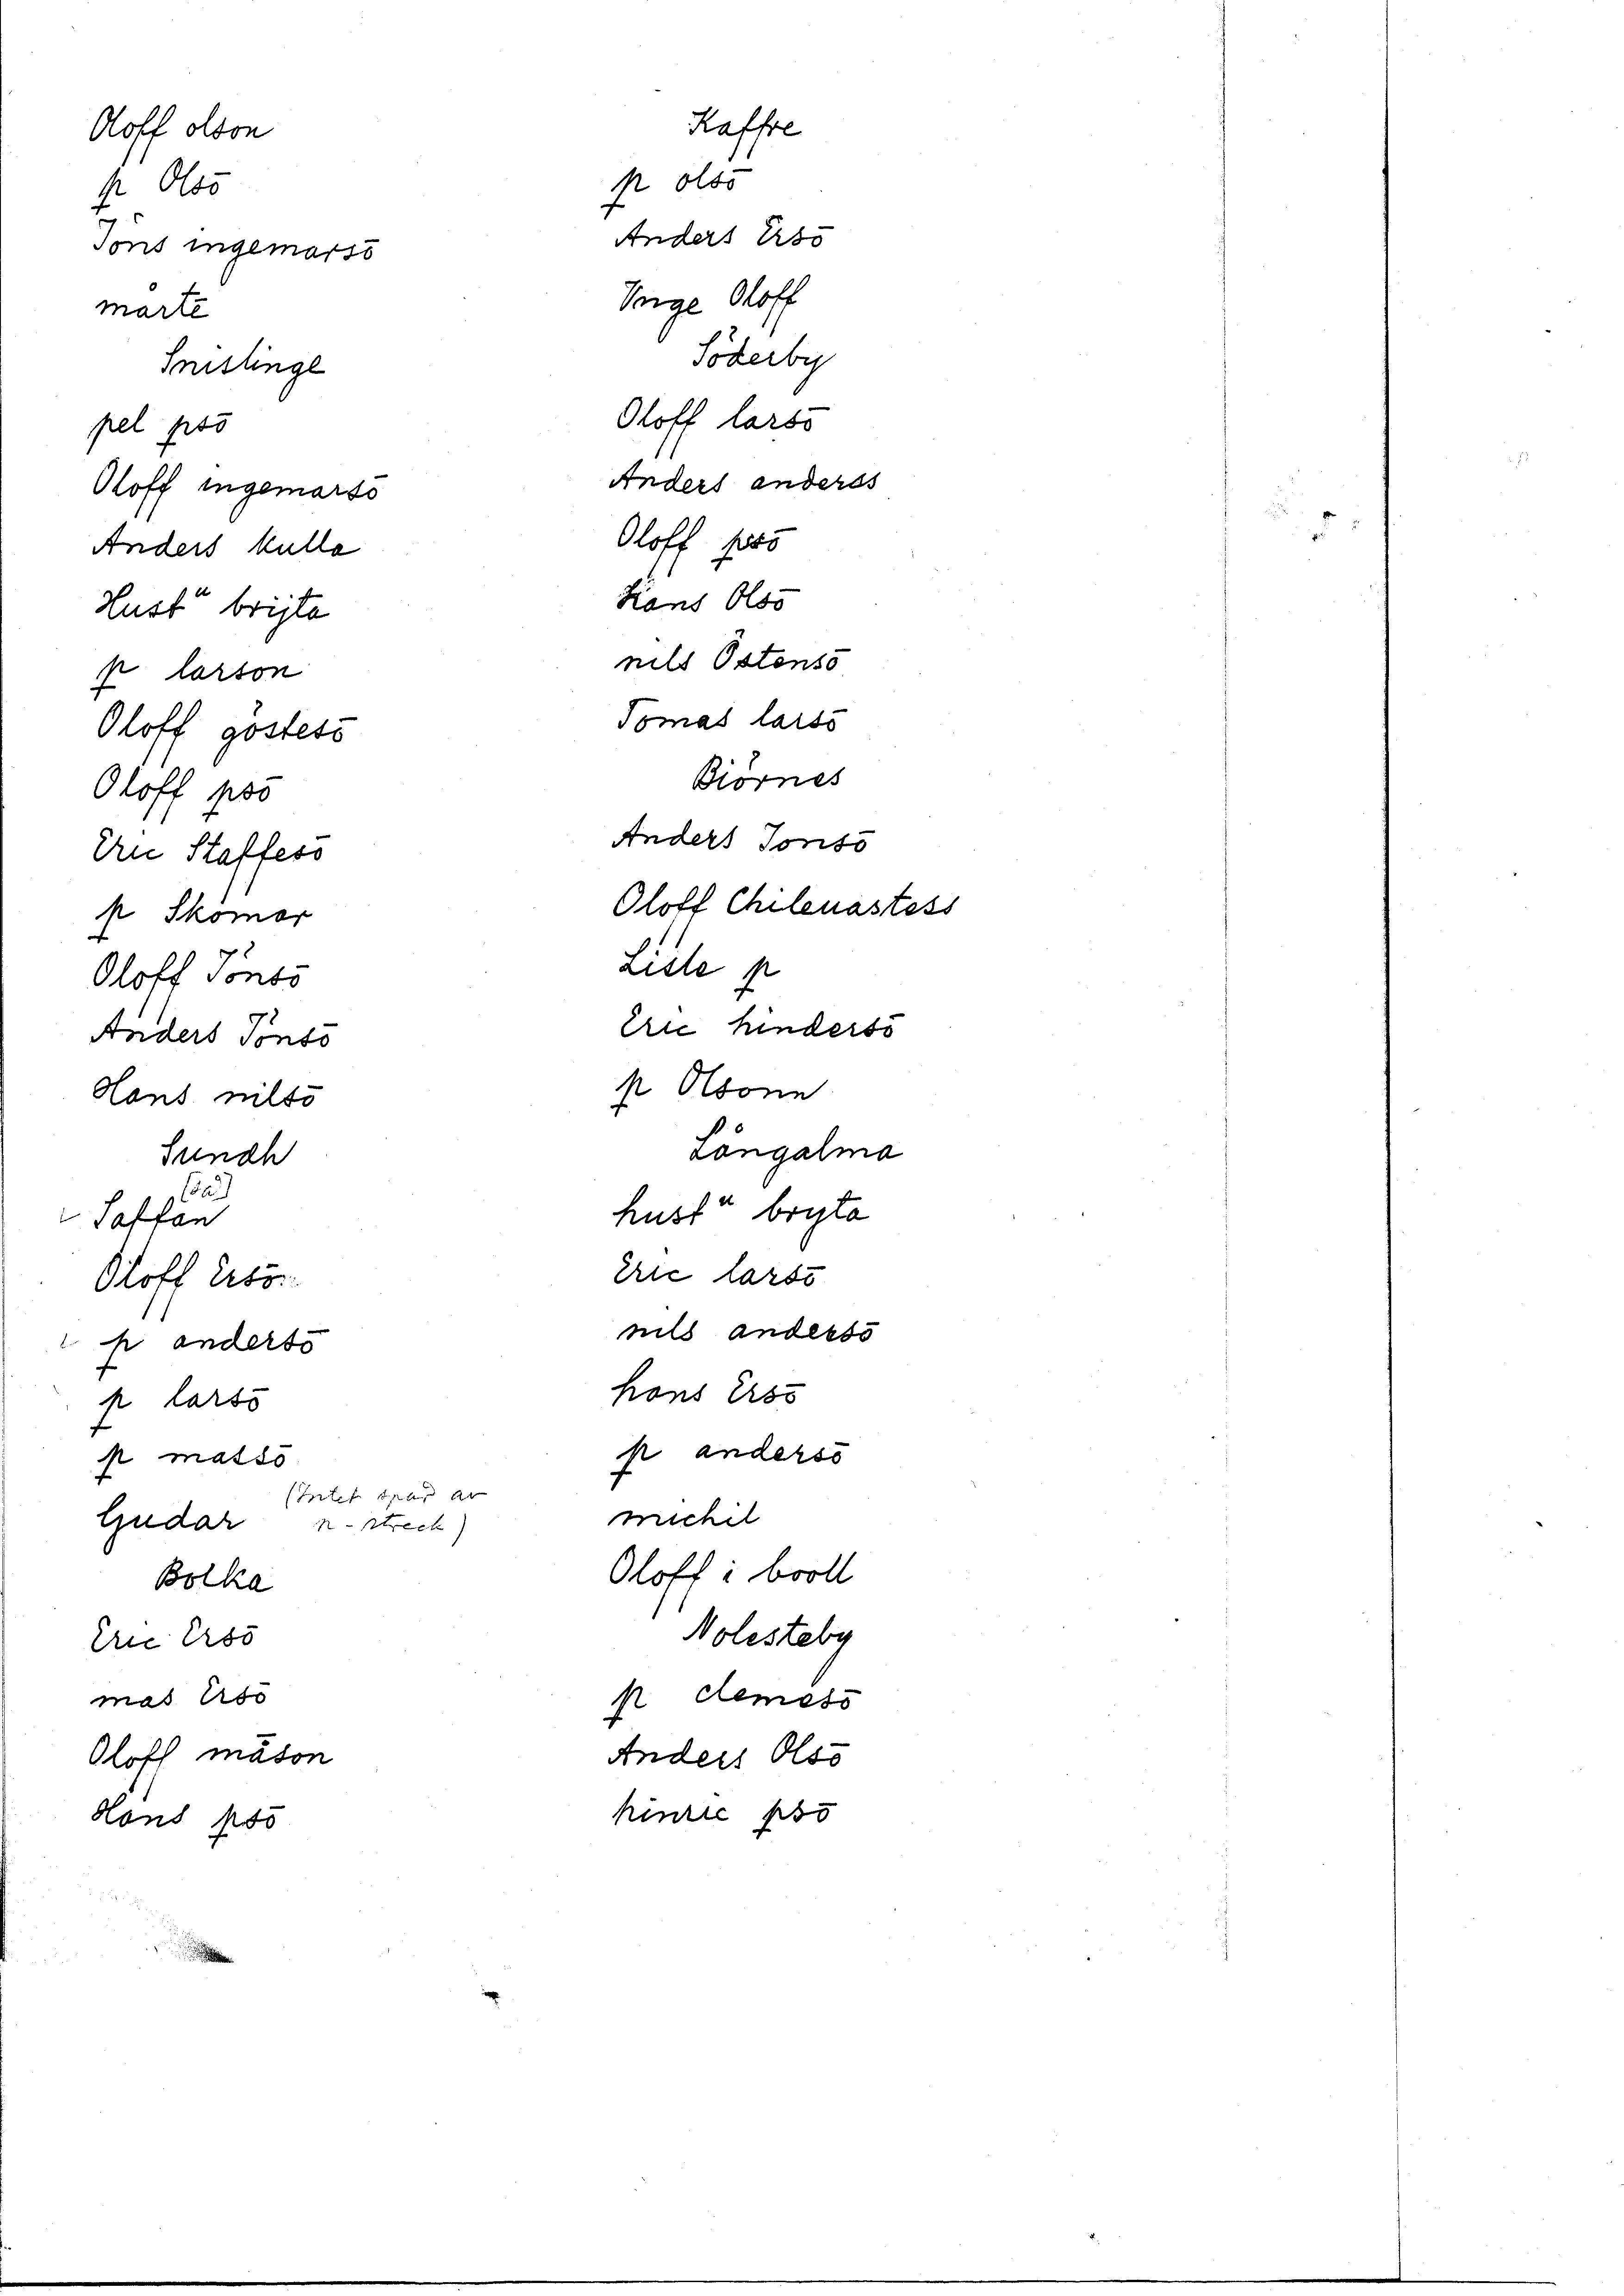 Oloff olson
p Olsō
Jöns ingemarsō
mårtē
Snislinge
pel psō
Oloff ingemarsō
Anders kulla
Hustᵘ brijta
p larson
Oloff göstesō
Oloff psō
Eric Staffesō
p Skomar
Oloff Jönsō
Anders Jönsō
Hans nilsō
Sundh
(så)
Saffan
Oloff Ersō
p andersō
p larsō
p matsō
(Intet spår av
Gudar n-streck)
Bolka
Eric Ersō
mas Ersō
Oloff māson
Hans psō
Kaffre
p olsō
Anders Ersō
Vnge Oloff
Söderby
Oloff larsō
Anders anderss
Oloff psō
Hans Olsō
nils Östensō
Tomas larsō
Biörnes
Anders Jonsō
Oloff Chilenastess
Lisle p
Eric hindersō
p Olsonn
Långalma
hustᵘ bryta
Eric larsō
nils andersō
hans Ersō
p andersō
michil
Oloff i booll
Nolesteby
p clemesō
Anders Olsō
hinric psō